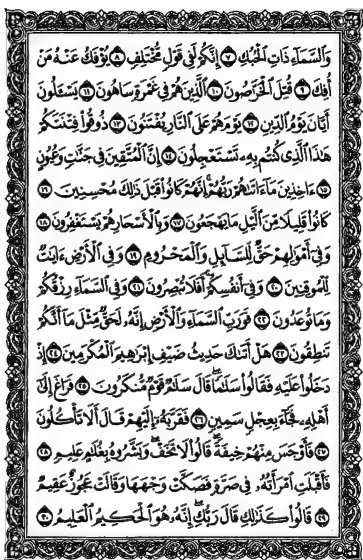 وَٱلسَّمَآءِ ذَاتِ ٱلۡحُبُكِ ٧ إِنَّكُمۡ لَفِي قَوۡلٖ مُّخۡتَلِفٖ ٨ يُؤۡفَكُ عَنۡهُ مَنۡ
أُفِكَ ٩ قُتِلَ ٱلۡخَرَّٰصُونَ ١٠ ٱلَّذِينَ هُمۡ فِي غَمۡرَةٖ سَاهُونَ ١١ يَسۡـَٔلُونَ
أَيَّانَ يَوۡمُ ٱلدِّينِ ١٢ يَوۡمَ هُمۡ عَلَى ٱلنَّارِ يُفۡتَنُونَ ١٣ ذُوقُواْ فِتۡنَتَكُمۡ
هَٰذَا ٱلَّذِي كُنتُم بِهِۦ تَسۡتَعۡجِلُونَ ١٤ إِنَّ ٱلۡمُتَّقِينَ فِي جَنَّٰتٖ وَعُيُونٍ
١٥ ءَاخِذِينَ مَآ ءَاتَىٰهُمۡ رَبُّهُمۡۚ إِنَّهُمۡ كَانُواْ قَبۡلَ ذَٰلِكَ مُحۡسِنِينَ ١٦
كَانُواْ قَلِيلٗا مِّنَ ٱلَّيۡلِ مَا يَهۡجَعُونَ ١٧ وَبِٱلۡأَسۡحَارِ هُمۡ يَسۡتَغۡفِرُونَ ١٨
وَفِيٓ أَمۡوَٰلِهِمۡ حَقّٞ لِّلسَّآئِلِ وَٱلۡمَحۡرُومِ ١٩ وَفِي ٱلۡأَرۡضِ ءَايَٰتٞ
لِّلۡمُوقِنِينَ ٢٠ وَفِيٓ أَنفُسِكُمۡۚ أَفَلَا تُبۡصِرُونَ ٢١ وَفِي ٱلسَّمَآءِ رِزۡقُكُمۡ
وَمَا تُوعَدُونَ ٢٢ فَوَرَبِّ ٱلسَّمَآءِ وَٱلۡأَرۡضِ إِنَّهُۥ لَحَقّٞ مِّثۡلَ مَآ أَنَّكُمۡ
تَنطِقُونَ ٢٣ هَلۡ أَتَىٰكَ حَدِيثُ ضَيۡفِ إِبۡرَٰهِيمَ ٱلۡمُكۡرَمِينَ ٢٤ إِذۡ
دَخَلُواْ عَلَيۡهِ فَقَالُواْ سَلَٰمٗاۖ قَالَ سَلَٰمٞ قَوۡمٞ مُّنكَرُونَ ٢٥ فَرَاغَ إِلَىٰٓ
أَهۡلِهِۦ فَجَآءَ بِعِجۡلٖ سَمِينٖ ٢٦ فَقَرَّبَهُۥٓ إِلَيۡهِمۡ قَالَ أَلَا تَأۡكُلُونَ
٢٧ فَأَوۡجَسَ مِنۡهُمۡ خِيفَةٗۖ قَالُواْ لَا تَخَفۡۖ وَبَشَّرُوهُ بِغُلَٰمٍ عَلِيمٖ ٢٨
فَأَقۡبَلَتِ ٱمۡرَأَتُهُۥ فِي صَرَّةٖ فَصَكَّتۡ وَجۡهَهَا وَقَالَتۡ عَجُوزٌ عَقِيمٞ
٢٩ قَالُواْ كَذَٰلِكِ قَالَ رَبُّكِۖ إِنَّهُۥ هُوَ ٱلۡحَكِيمُ ٱلۡعَلِيمُ ٣٠